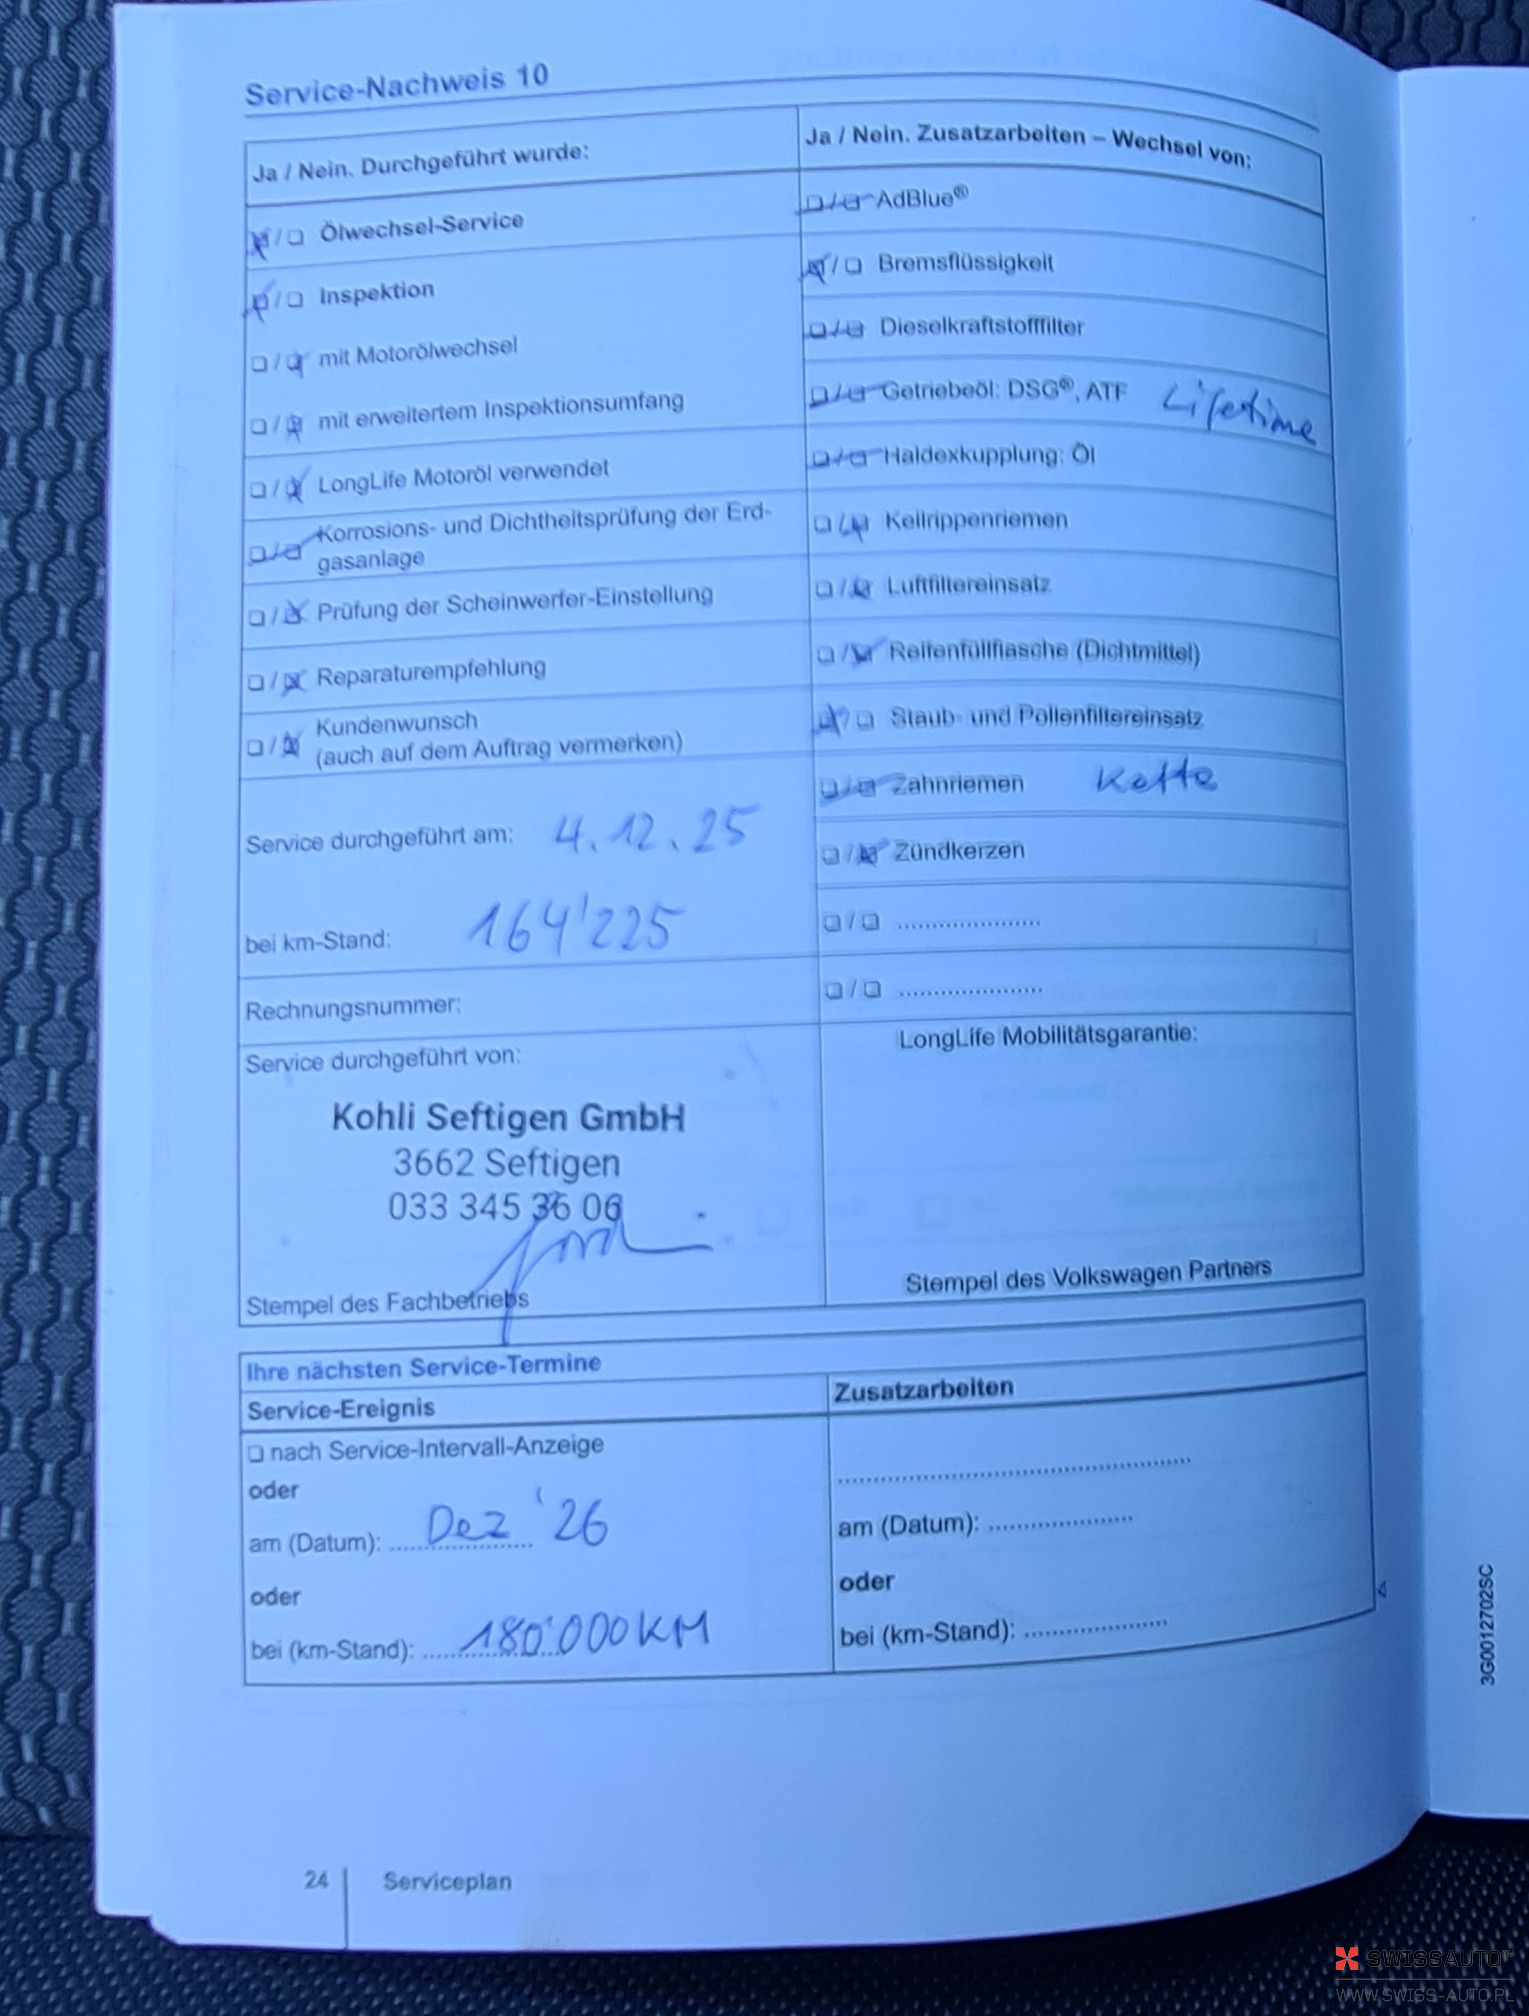 Service-Nachweis 10
Ja / Nein. Durchgeführt wurde:
Ölwechsel-Service
Inspektion
mit Motorölwechsel
mit erweitertem Inspektionsumfang
LongLife Motoröl verwendet
Korrosions- und Dichtheitsprüfung der Erd-
gasanlage
Prüfung der Scheinwerfer-Einstellung
Reparaturempfehlung
Kundenwunsch
(auch auf dem Auftrag vermerken)
Service durchgeführt am: 4.12.25
bei km-Stand: 164'225
Rechnungsnummer:
Service durchgeführt von:
Kohli Seftigen GmbH
3662 Seftigen
033 345 36 06
Stempel des Fachbetriebs
Ja / Nein. Zusatzarbeiten – Wechsel von:
AdBlue®
Bremsflüssigkeit
Dieselkraftstofffilter
Getriebeöl: DSG®, ATF Lifetime
Haldexkupplung: Öl
Keilrippenriemen
Luftfiltereinsatz
Reifenfüllflasche (Dichtmittel)
Staub- und Pollenfiltereinsatz
Zahnriemen Kette
Zündkerzen
LongLife Mobilitätsgarantie:
Stempel des Volkswagen Partners
Ihre nächsten Service-Termine
Service-Ereignis
nach Service-Intervall-Anzeige
oder
am (Datum): Dez '26
oder
bei (km-Stand): 180'000 KM
Zusatzarbeiten
am (Datum):
oder
bei (km-Stand):
3G0012702SC
24 Serviceplan
SWISSAUTO
WWW.SWISS-AUTO.PL